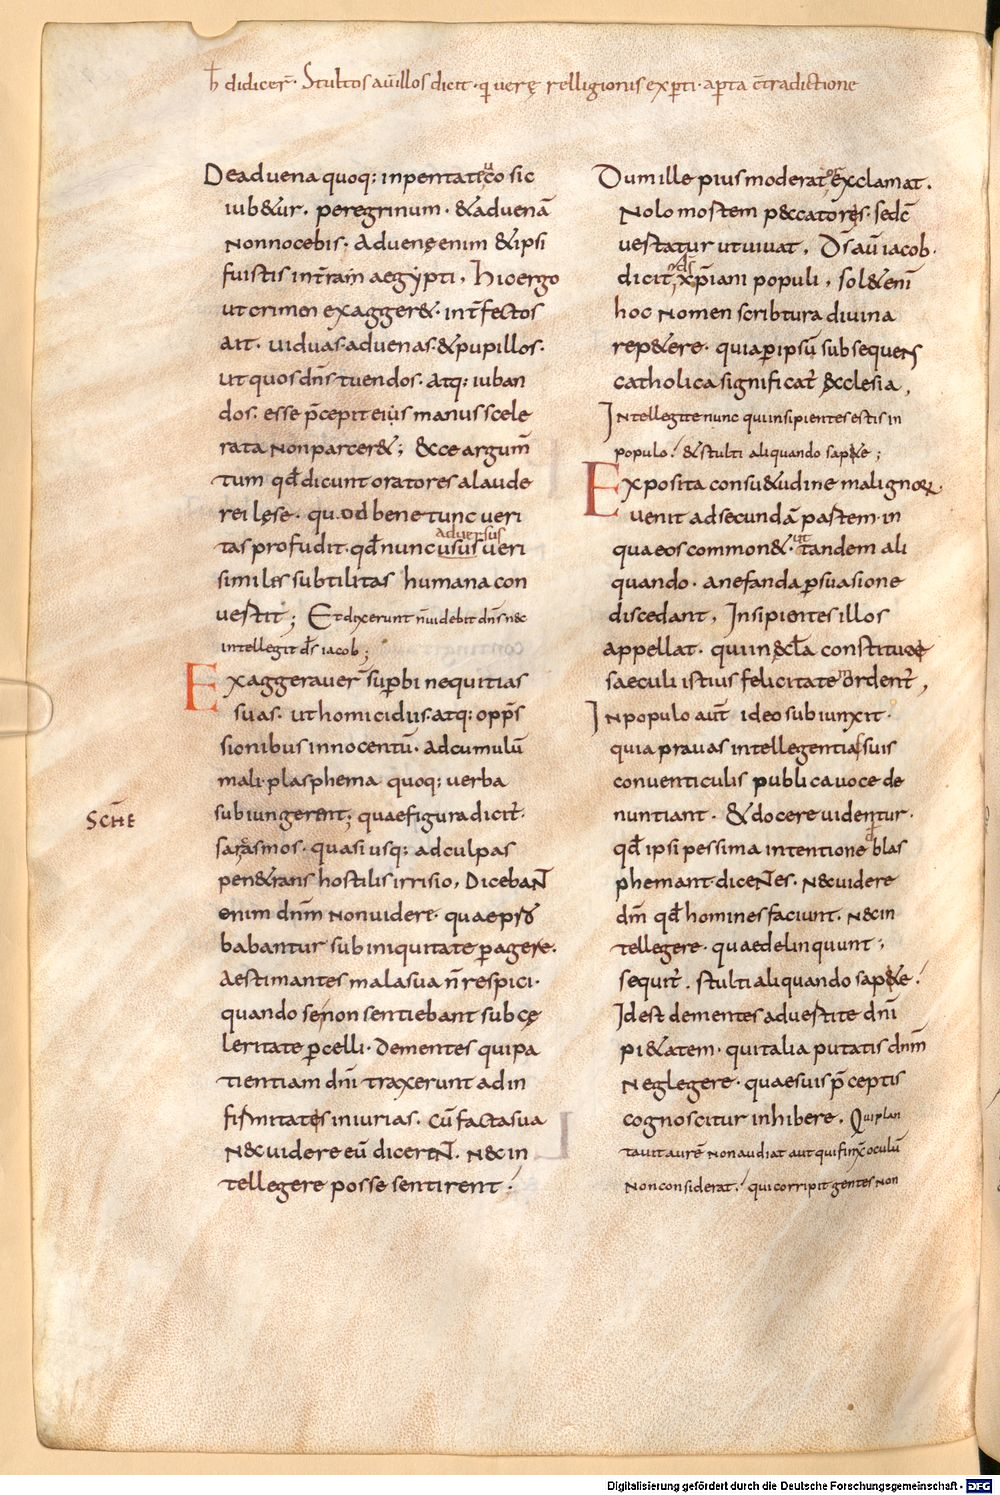 ħ didicer̄· Stultos aū illos dicit· q̇ uerę relligionis exp̱ti· ap̱ta c̄tradictione
De aduena quoq; in pentateuco sic
iub&ur· peregrinum· & aduenā
non nocebis· Aduenę enim & ipsi
fuistis in t̄ram aegypti, Hic ergo
ut crimen exagger&· int̄fectos
ait· uiduas· aduenas· & pupillos·
ut quos dn̄s tuendos· atq; iuban
dos· esse p̄cepit eius manus scele
rata non parcer&; & ecce argum̄
tum qđ dicunt oratores a laude
rei lęse· quod bene tunc ueri
tas profudit· qđ nunc usus ueri
aduersus
similis subtilitas humana con
uestit; Et dixerunt n̄ uidebit dn̄s nec
intelleget ds̄ iacob;
Exaggerauer̄ sup̱bi nequitias
suas· ut homicidiis· atq; opp̄s
sionibus innocentū· ad cumulū
mali· plasphema quoq; uerba
subiungerent; quae figura dicit̄·
SCHE
sarcasmos· quasi usq; ad culpas
pen&rans hostilis irrisio, DicebaNT
enim dn̄m non uidere· quae p̱
babantur sub iniquitate p̱agere·
Aestimantes mala sua n̄ respici·
quando se non sentiebant sub cę
leritate p̱celli· Dementes qui pa
tientiam dn̄i traxerunt ad in
firmitates iniurias· cū facta sua
nec uidere eū dicereNT· nec in
tellegere posse sentirent·
Dum ille pius moderator exclamat·
Nolo mortem peccatoręs· sed c̄
uertatur ut uiuat, Ds̄ aū iacob·
dicit, ds̄ xp̄iani populi, sol& enī
hoc nomen scribtura diuina
rep&ere· quia p̱ ipsū subsequens
catholica significat̄ ecclesia,
Intellegite nunc qui insipientes estis in
populo· & stulti aliquando sapite;
Exposita consu&udine malignoꝝ·
uenit ad secundā partem· in
qua eos common&· ut tandem ali
quando· a nefanda p̱suasione
discedant, Insipientes illos
appellat· qui in eccła constitute
saeculi istius felicitatem ordent̄,
In populo aūt ideo subiunxit·
quia prauas intellegentias suis
conuenticulis publica uoce de
nuntiant· & docere uidentur·
qđ ipsi pessima intentione blas
phemant· diceNTes· nec uidere
dn̄m qđ homines faciunt· nec in
tellegere· quae delinquunt;
sequit̄· stulti aliquando sapite·
Id est dementes aduertite dn̄i
pi&atem· qui talia putatis dnm̄
neglegere· quae suis p̄ceptis
cognoscitur inhibere, Qui plan
tauit aurē non audiat aut qui finxit oculū
non considerat· qui corripit gentes non
Digitalisierung gefördert durch die Deutsche Forschungsgemeinschaft - DFG